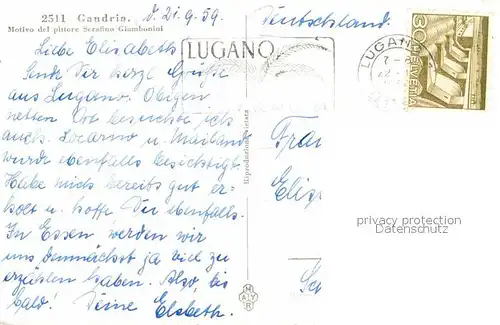 2511 Gandria.
Motivo del pittore Serafino Giambonini
d. 21.9.59.
Deutschland.
LUGANO
LUGAN
30 HELVETIA
Liebe Elisabeth
Sende Dir herzl. Grüsse
aus Lugano. Obigen
netten Ort besuchte ich
auch. Locarno u. Mailand
wurde ebenfalls besichtigt.
Habe mich bereits gut er-
holt u. hoffe Du ebenfalls.
In Essen werden wir
uns demnächst ja viel zu
erzählen haben. Also, bis
bald! Deine Elsbeth.
Riproduzione vietata
Frau
Elis
privacy protection
Datenschutz